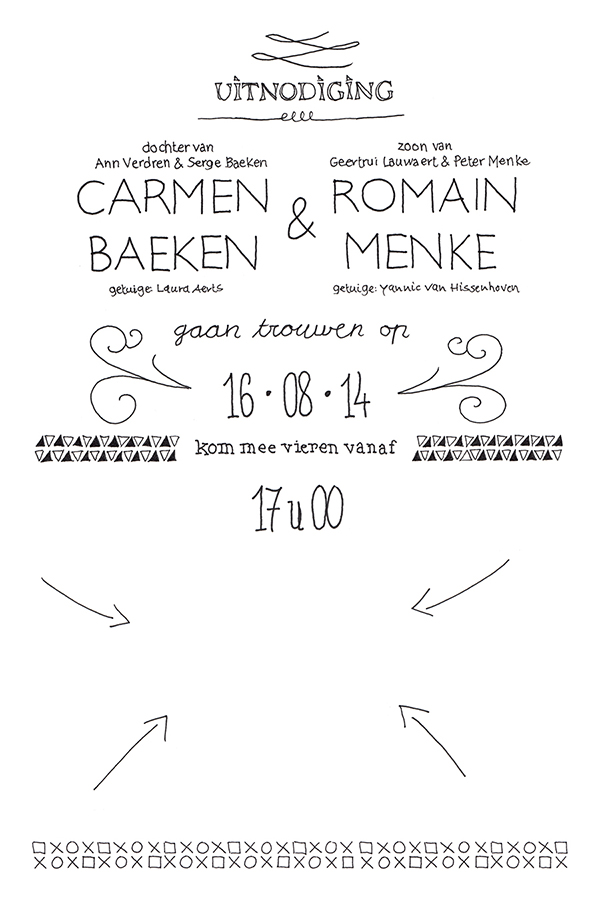 UITNODIGING
dochter van
Ann Verdren & Serge Baeken
CARMEN
BAEKEN
getuige: Laura Aerts
&
zoon van
Geertrui Lauwaert & Peter Menke
ROMAIN
MENKE
getuige: Yannic Van Hissenhoven
gaan trouwen op
16 · 08 · 14
kom mee vieren vanaf
17 u 00